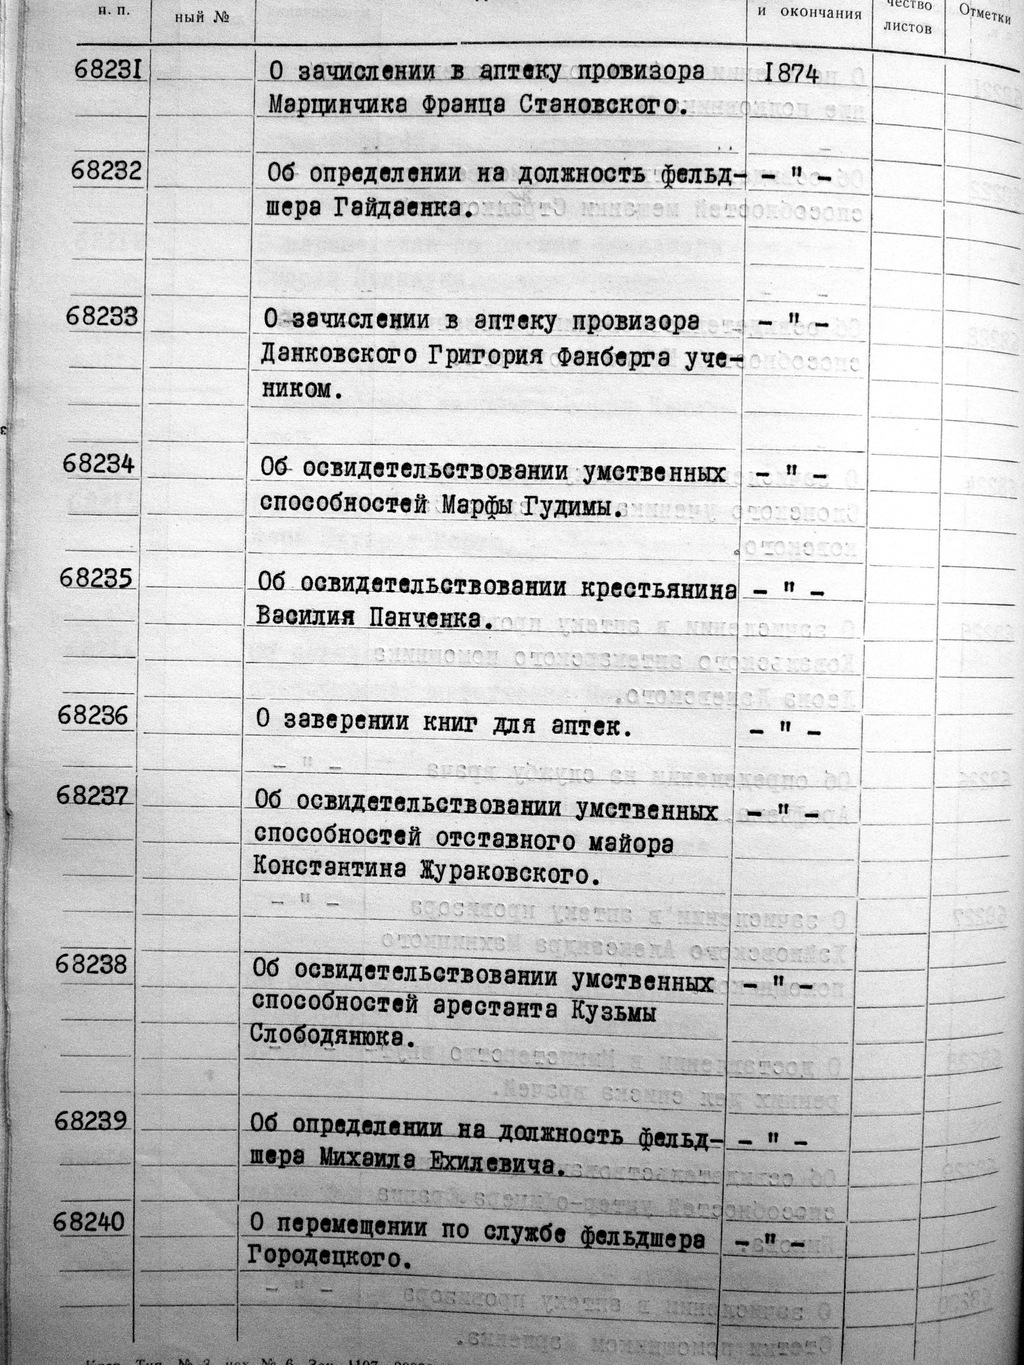 н. п.
ный №
и окончания
чество
листов
Отметки
68231 О зачислении в аптеку провизора 1874
Марцинчика Франца Становского.
68232 Об определении на должность фельд- - " -
шера Гайдаенка.
68233 О зачислении в аптеку провизора - " -
Данковского Григория Фанберга уче-
ником.
68234 Об освидетельствовании умственных - " -
способностей Марфы Гудимы.
68235 Об освидетельствовании крестьянина - " -
Василия Панченка.
68236 О заверении книг для аптек. - " -
68237 Об освидетельствовании умственных - " -
способностей отставного майора
Константина Жураковского.
68238 Об освидетельствовании умственных - " -
способностей арестанта Кузьмы
Слободянюка.
68239 Об определении на должность фельд- - " -
шера Михаила Ехилевича.
68240 О перемещении по службе фельдшера - " -
Городецкого.